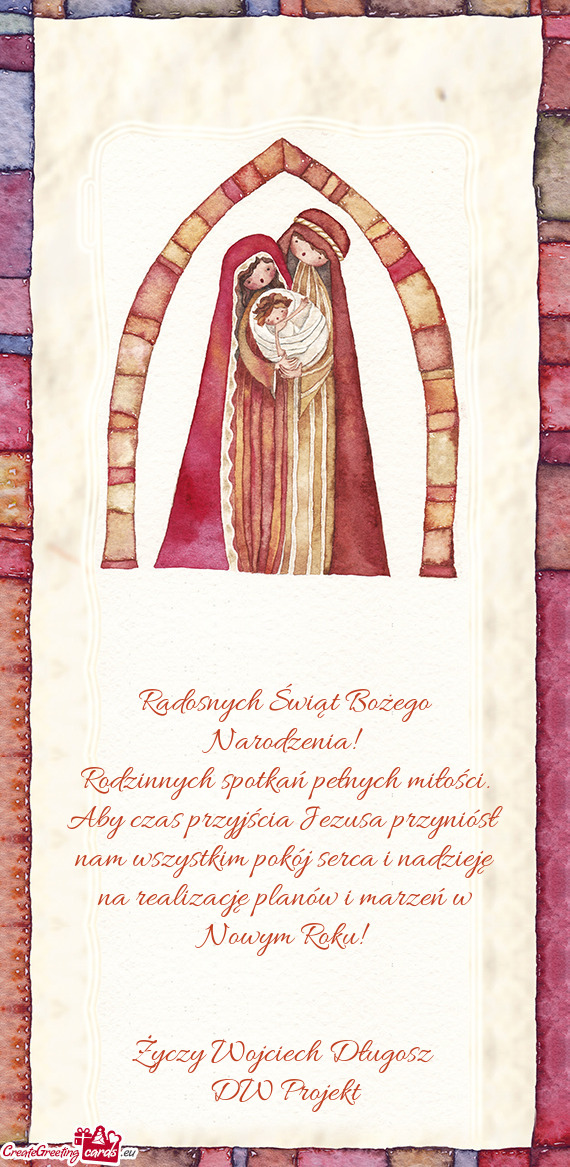 Radosnych Świąt Bożego
Narodzenia!
Rodzinnych spotkań pełnych miłości.
Aby czas przyjścia Jezusa przyniósł
nam wszystkim pokój serca i nadzieję
na realizację planów i marzeń w
Nowym Roku!
Życzy Wojciech Długosz
DW Projekt
CreateGreeting cards .eu